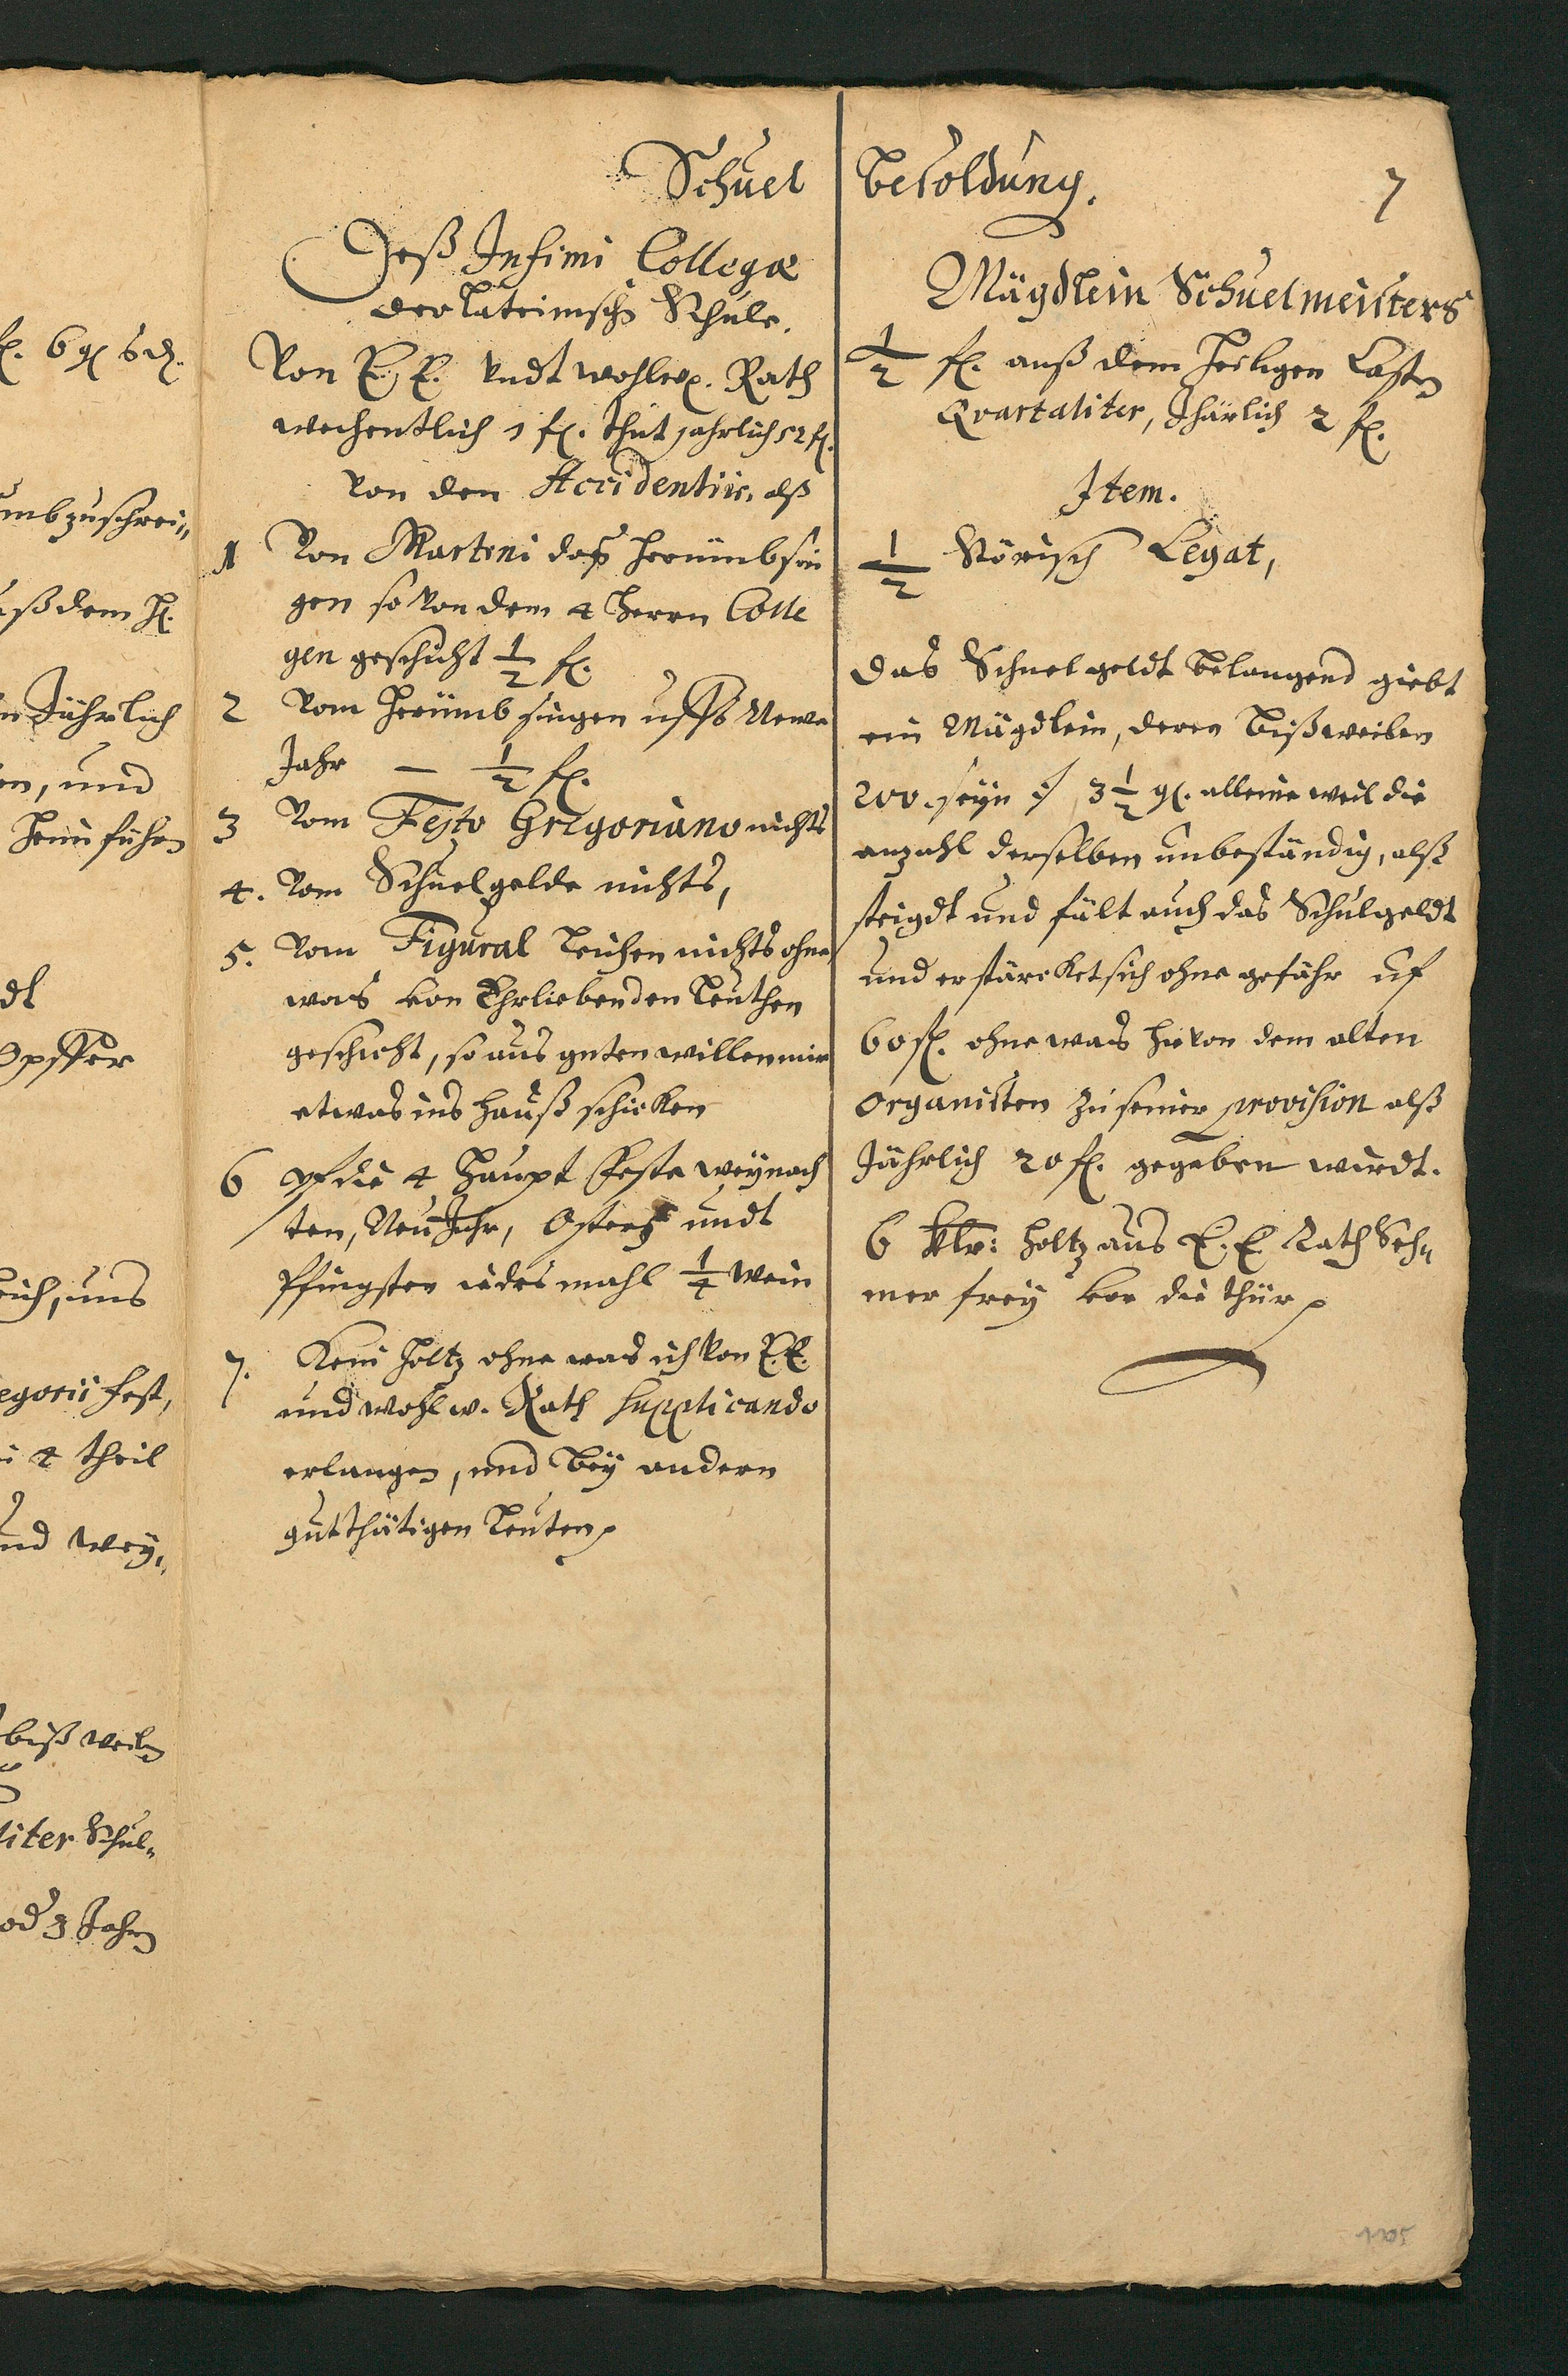 Schuel Besoldung.
7
Deß Infimi Collegæ
der Lateinischen Schule.
Von E. E. undt wohlw. Rath
wechentlich 1 fl. thut jahrlich 52 fl.
von den Accidentiis, alß
1 Von Marteni daß herumb sin
gen so von dem 4 Herrn Colle
gen geschicht 1/2 fl.
2 Vom herumb singen uffs Newe
Jahr — 1/2 fl.
3 Vom Festo Gregoriano nichts
4. Vom Schuelgelde nichts,
5. Vom Figural Leichen nichts ohne
was von Ehrliebenden Leuthen
geschicht, so aus guten willen mir
etwas ins Hauß schicken
6 Uf die 4 Haupt Feste Weynach
ten, Neu Jahr, Ostern undt
Pfingsten iedes mahl 1/4 Wein
7. Kein Holtz ohne was ich von E. E.
und wohlw. Rath supplicando
erlangen, und bey andern
gutthätigen Leuten
Mägdlein Schuelmeisters
1/2 fl. auß dem Heiligen Casten
Qvartaliter, Jhärlich 2 fl.
Item.
1/2 Störisch Legat,
das Schuelgeldt belangend giebt
ein Mägdlein, deren bißweilen
200. seyn 3 1/2 gl. alleine weil die
anzahl derselben unbeständig, alß
steigdt und fält auch das Schulgeldt
und erstärcket sich ohne gefähr uf
60 fl. ohne was hievon dem alten
Organisten zu seiner provision alß
Jährlich 20 fl. gegeben wirdt.
6 klr: Holtz aus E. E Rath Seh„
mer frey vor die thür
6 gl 5 d.
umbzuschrei„
aß dem H.
Jährlich
en, und
Heimführen
dt
Opffer
eich, uns
egorii Fest,
4 theil
und Wey„
bißweilen
liter Schul„
od 3 Jahren
1105